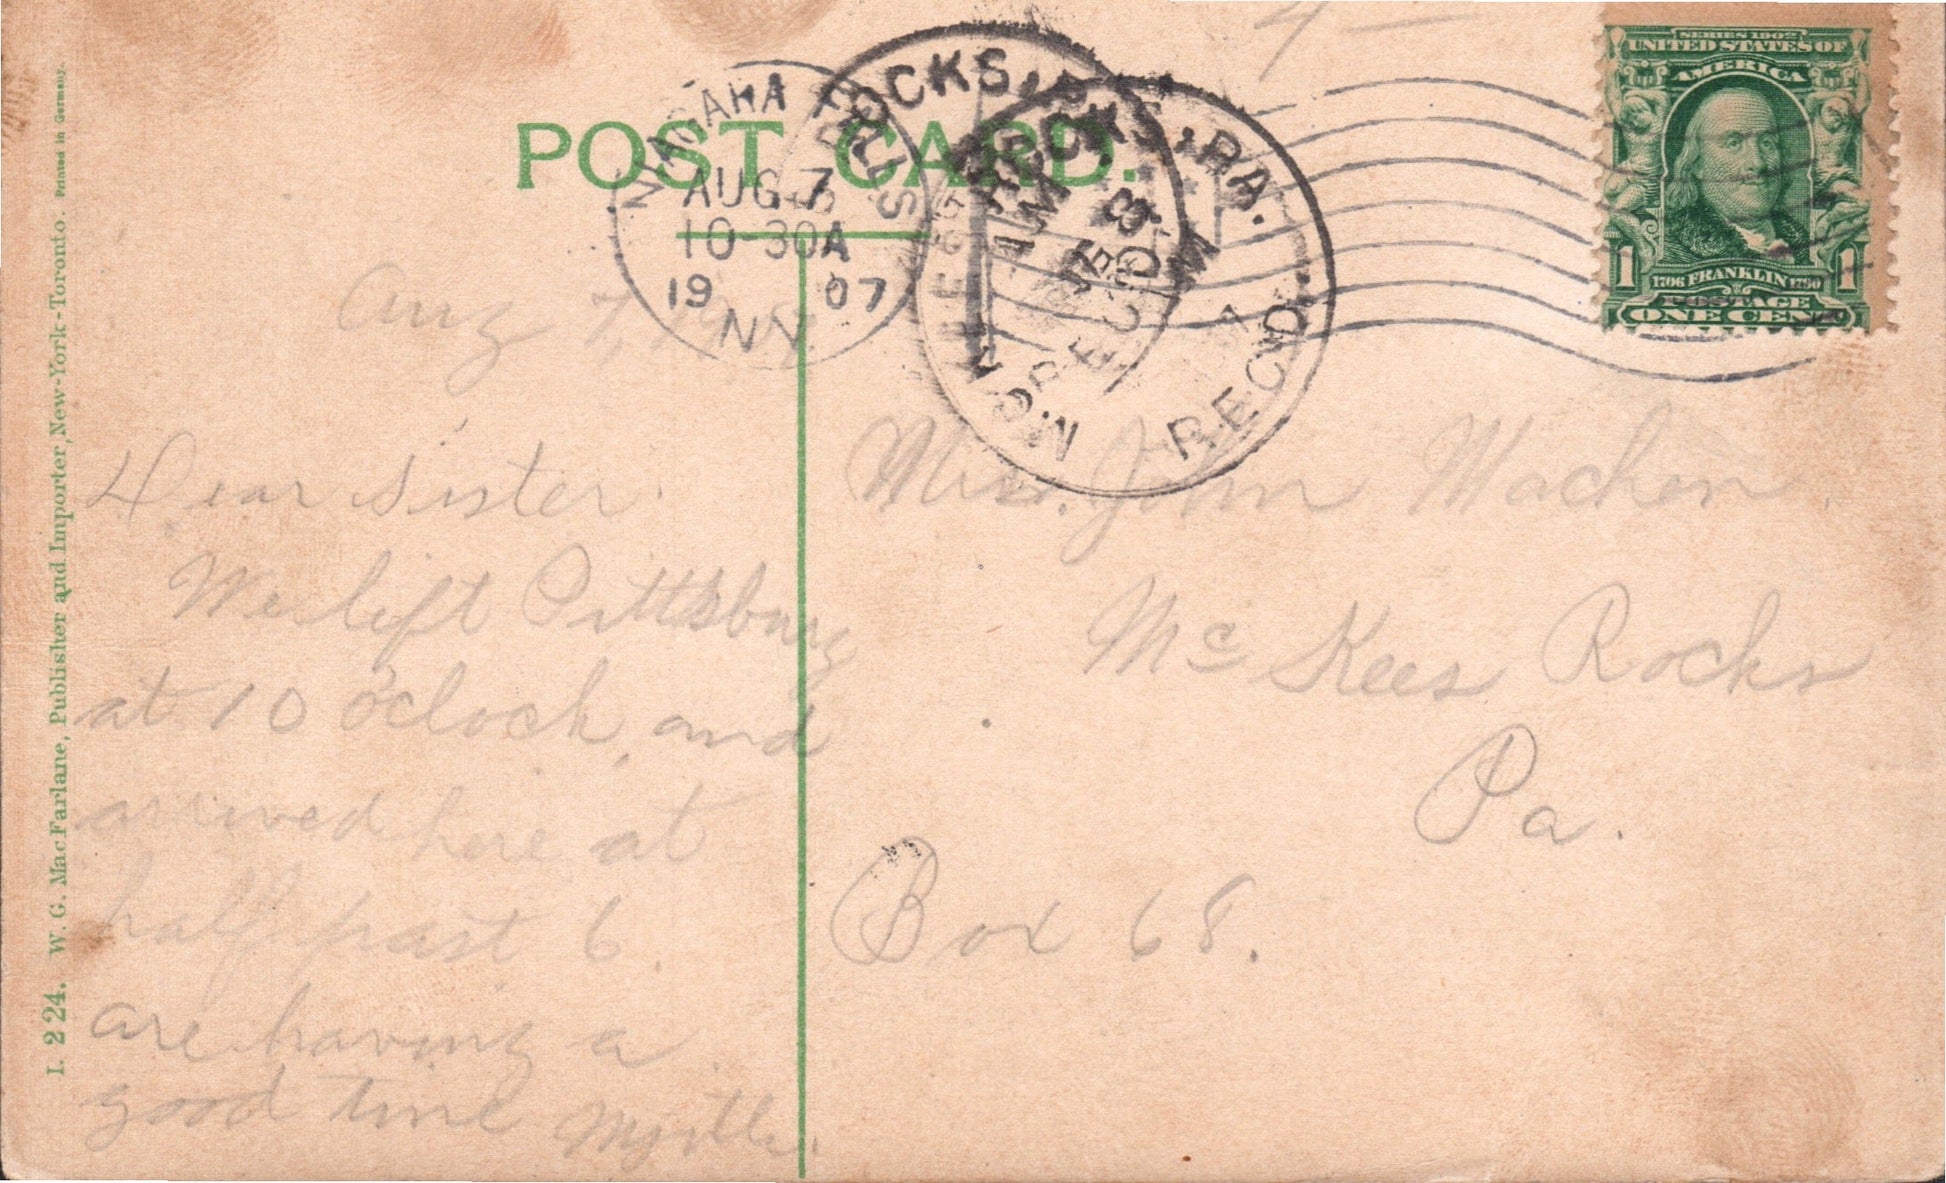 POST CARD.
NIAGARA FALLS
AUG 7
10-30A
19 07
N.Y.
ROCKS, PA.
REC'D.
SERIES 1902
UNITED STATES OF
AMERICA
1 1706 FRANKLIN 1790 1
POSTAGE
ONE CENT
Aug 7, 1907.
Dear Sister.
We left Pittsburg
at 10 o'clock, and
arrived here at
half past 6.
are having a
good time Myrtle.
Mrs. John Machen.
Mc Kees Rocks
Pa.
Box 68.
I. 224. W. G. MacFarlane, Publisher and Importer, New-York-Toronto. Printed in Germany.